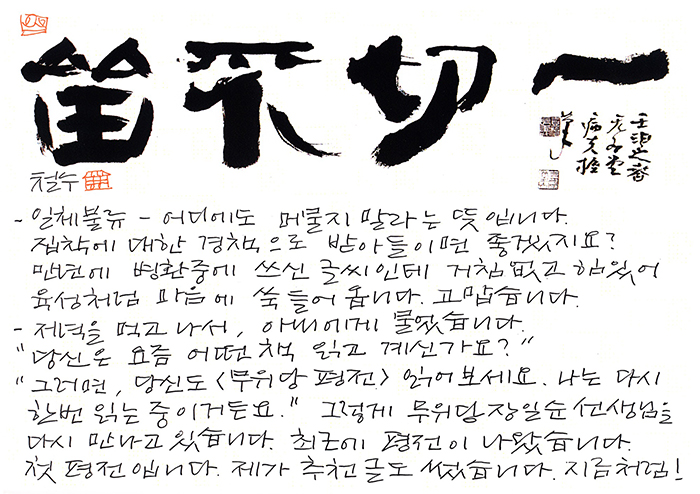 一切不留
철수
- 일체불류 - 어디에도 머물지 말라는 뜻입니다.
집착에 대한 경책으로 받아들이면 좋겠지요?
만년에 병환중에 쓰신 글씨인데 거침없고 힘있어
육성처럼 마음에 쑥 들어옵니다. 고맙습니다.
- 저녁을 먹고 나서, 아내에게 물었습니다.
"당신은 요즘 어떤 책 읽고 계신가요?"
"그러면, 당신도 <무위당 평전> 읽어보세요. 나는 다시
한번 읽는 중이거든요." 그렇게 무위당 장일순 선생님을
다시 만나고 있습니다. 최근에 평전이 나왔습니다.
첫 평전입니다. 제가 추천글도 썼습니다. 지금처럼!